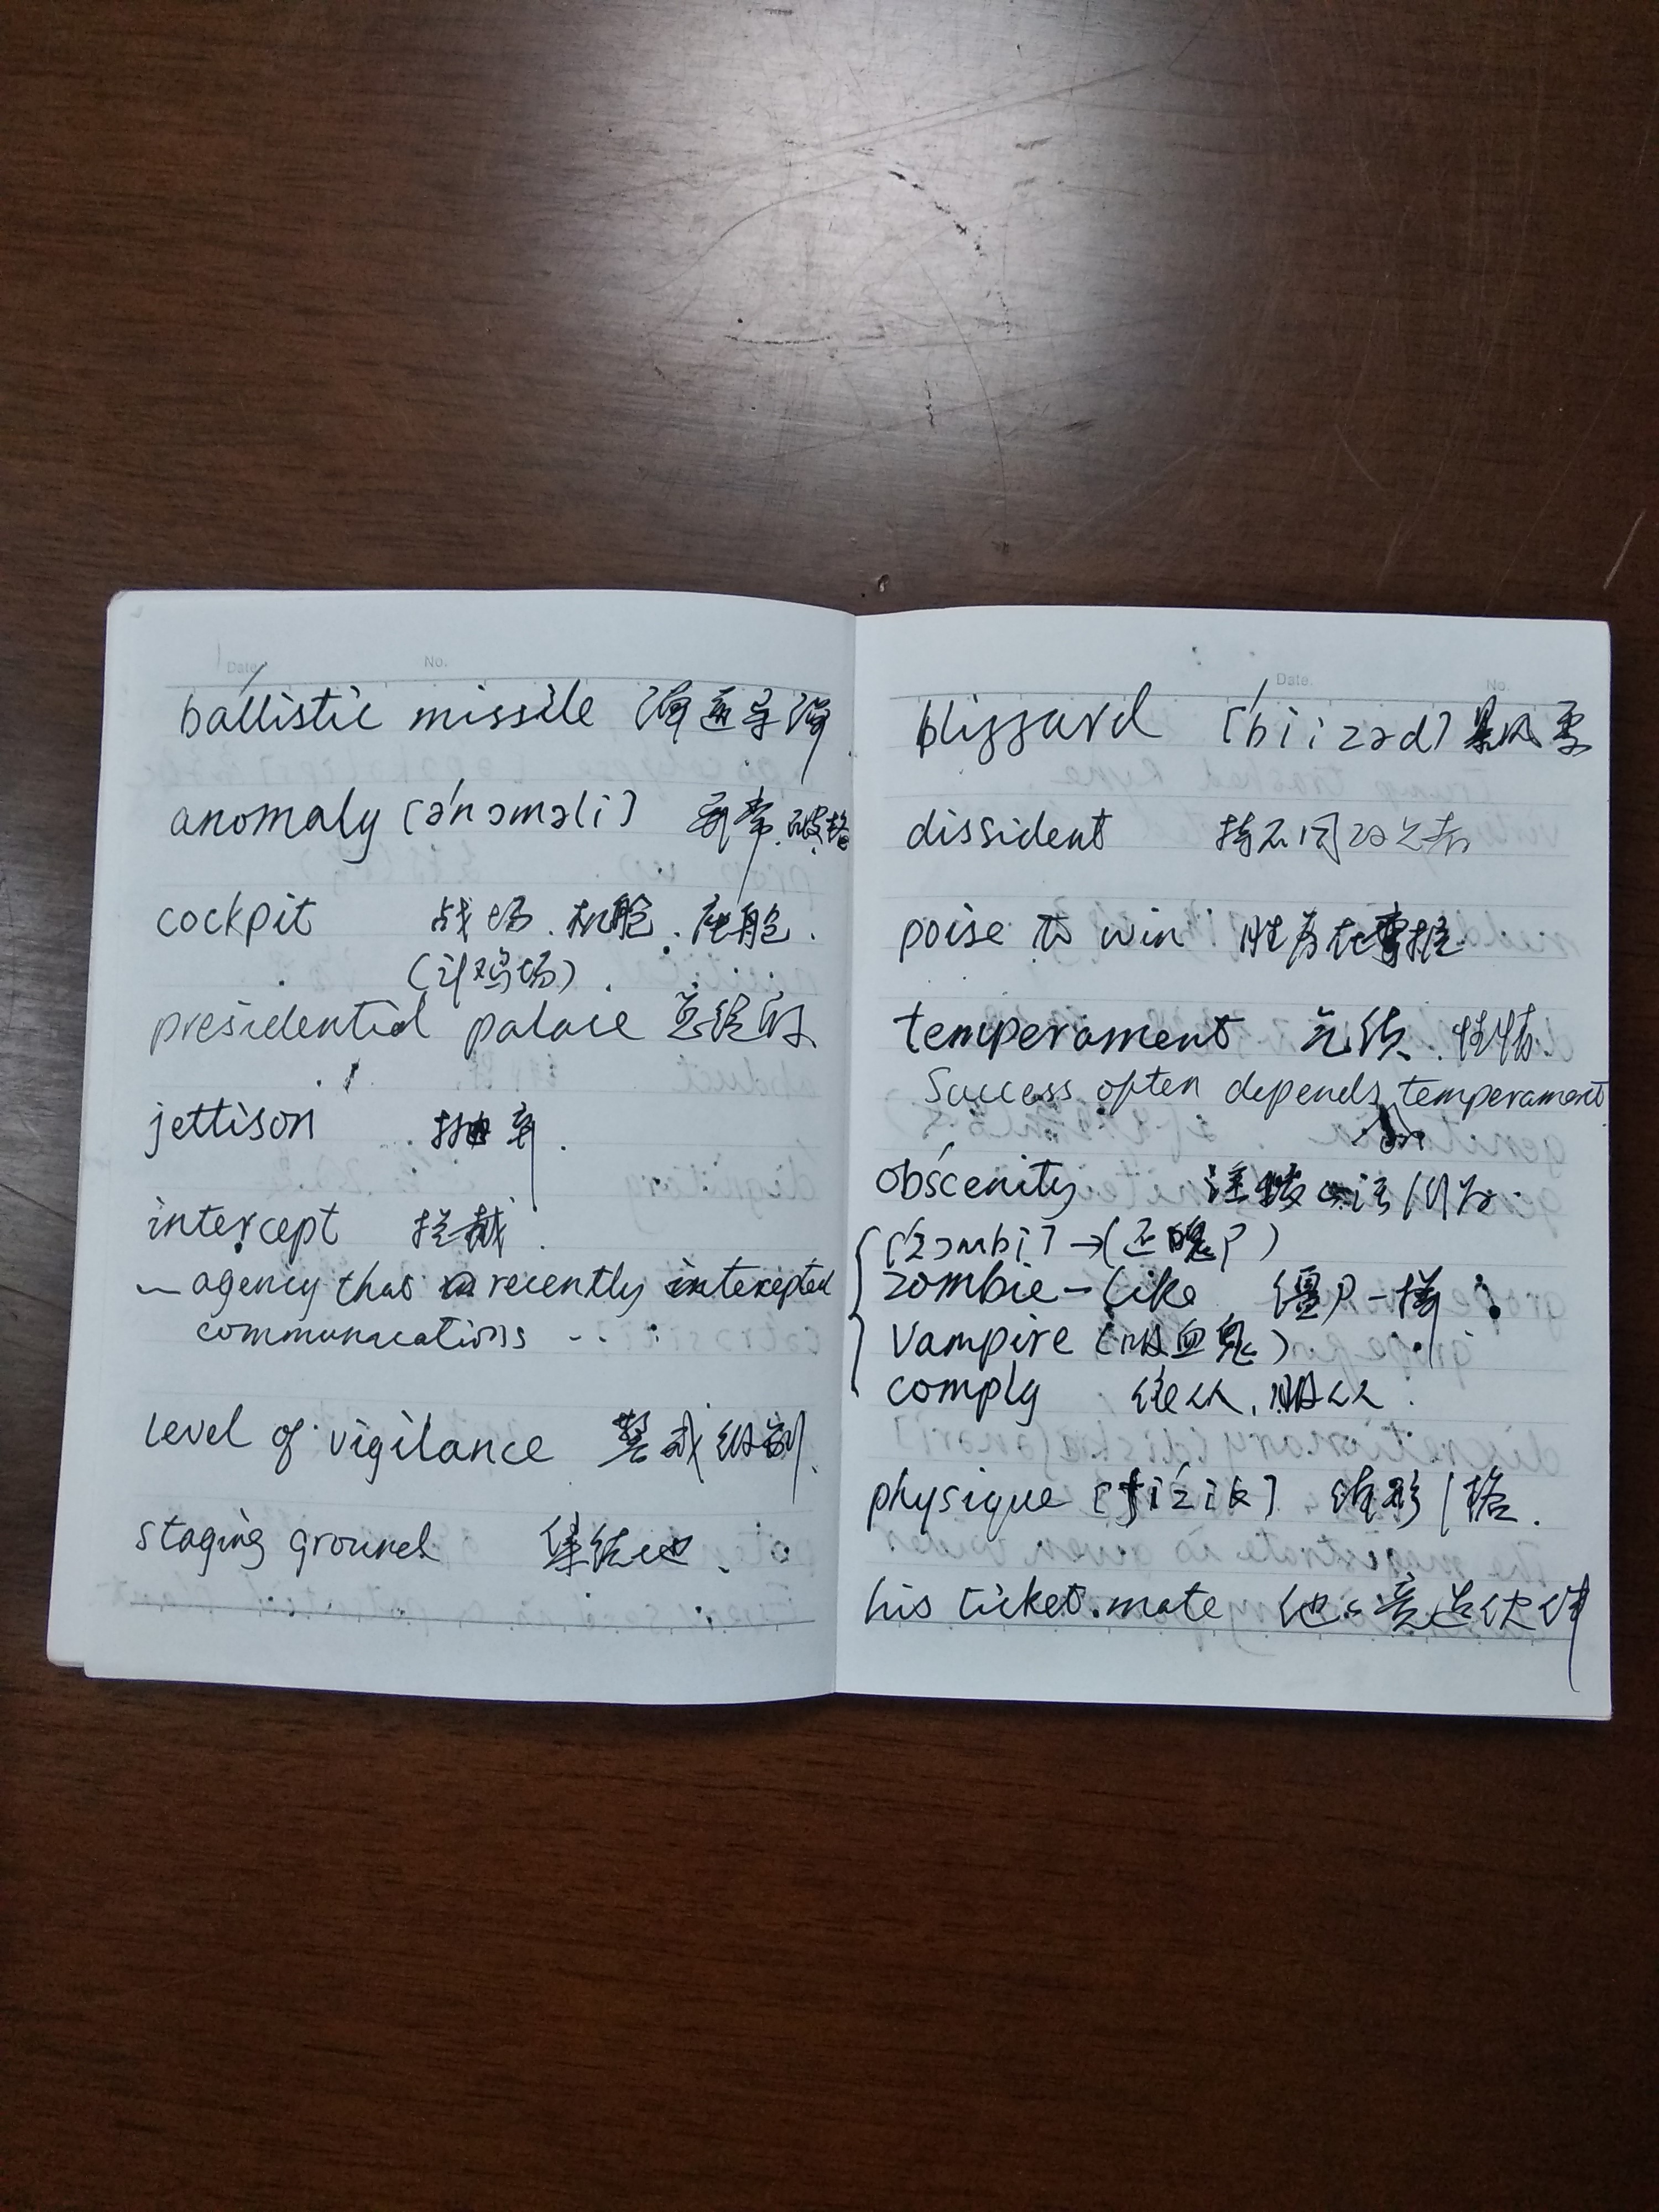 Date. No.
ballistic missile 弹道导弹
anomaly [ə'nɔməli] 异常.破格
cockpit 战场.机舱.座舱.
(斗鸡场).
presidential palace 总统府
jettison 抛弃.
intercept 拦截.
agency that recently intercepted
communications ...
level of vigilance 警戒级别.
staging ground 集结地.
Date. No.
blizzard 暴风雪
dissident 持不同政见者
poise to win 胜券在握
temperament 气质.性情.
Success often depends on temperament
obscenity
['zɔmbi]→(还魂尸)
zombie-like 僵尸一样
vampire (吸血鬼)
comply 遵从,服从.
physique [fi'zik] 体形/格.
his ticket.mate 他的竞选伙伴